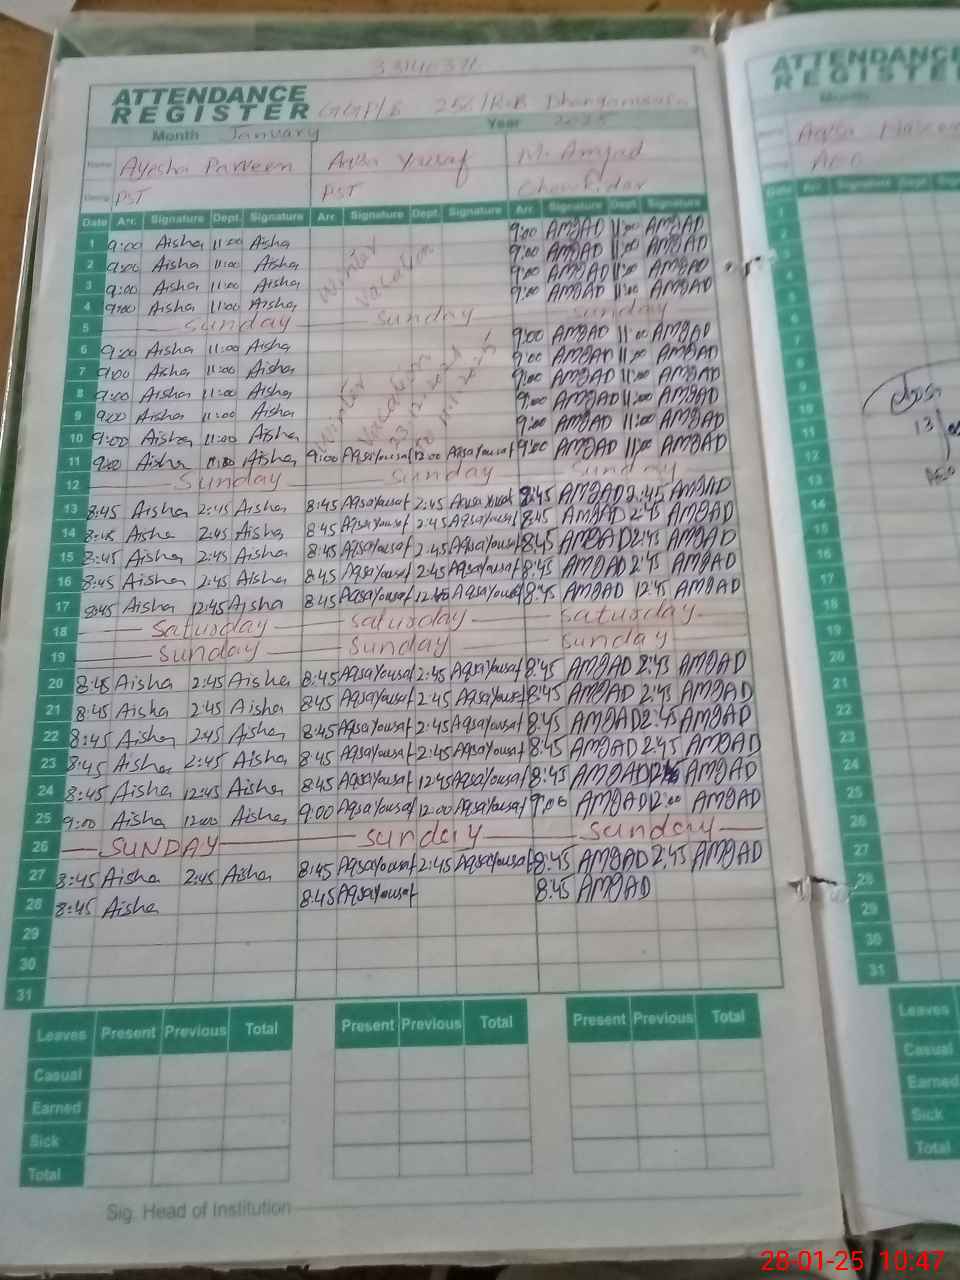 ATTENDANCE
REGISTER
Month January Year 2025
Name Ayesha Parveen Aqsa Yousaf M. Amjad
Desig PST PST Chowkidar
Date Arr. Signature Dept. Signature Arr. Signature Dept. Signature Arr Signature Dept Signature
1 9:00 Aisha 11:00 Aisha 9:00 AMJAD 11:00 AMJAD
2 9:00 Aisha 11:00 Aisha Winter 9:00 AMJAD 11:00 AMJAD
3 9:00 Aisha 11:00 Aisha Vacation 9:00 AMJAD 11:00 AMJAD
4 9:00 Aisha 11:00 Aisha 9:00 AMJAD 11:00 AMJAD
5 Sunday Sunday Sunday
6 9:00 Aisha 11:00 Aisha 9:00 AMJAD 11:00 AMJAD
7 9:00 Aisha 11:00 Aisha 9:00 AMJAD 11:00 AMJAD
8 9:00 Aisha 11:00 Aisha Winter 9:00 AMJAD 11:00 AMJAD
9 9:00 Aisha 11:00 Aisha Vacation 9:00 AMJAD 11:00 AMJAD
10 9:00 Aisha 11:00 Aisha 9:00 AMJAD 11:00 AMJAD
11 9:00 Aisha 11:00 Aisha 9:00 AqsaYousaf 12:00 AqsaYousaf 9:00 AMJAD 11:00 AMJAD
12 Sunday Sunday Sunday
13 8:45 Aisha 2:45 Aisha 8:45 AqsaYousaf 2:45 Aqsa Yousaf 8:45 AMJAD 2:45 AMJAD
14 8:45 Aisha 2:45 Aisha 8:45 AqsaYousaf 2:45 AqsaYousaf 8:45 AMJAD 2:45 AMJAD
15 8:45 Aisha 2:45 Aisha 8:45 AqsaYousaf 2:45 AqsaYousaf 8:45 AMJAD 2:45 AMJAD
16 8:45 Aisha 2:45 Aisha 8:45 AqsaYousaf 2:45 AqsaYousaf 8:45 AMJAD 2:45 AMJAD
17 8:45 Aisha 12:45 Aisha 8:45 AqsaYousaf 12:45 AqsaYousaf 8:45 AMJAD 12:45 AMJAD
18 Saturday Saturday Saturday
19 Sunday Sunday Sunday
20 8:45 Aisha 2:45 Aisha 8:45 AqsaYousaf 2:45 AqsaYousaf 8:45 AMJAD 2:45 AMJAD
21 8:45 Aisha 2:45 Aisha 8:45 AqsaYousaf 2:45 AqsaYousaf 8:45 AMJAD 2:45 AMJAD
22 8:45 Aisha 2:45 Aisha 8:45 AqsaYousaf 2:45 AqsaYousaf 8:45 AMJAD 2:45 AMJAD
23 8:45 Aisha 2:45 Aisha 8:45 AqsaYousaf 2:45 AqsaYousaf 8:45 AMJAD 2:45 AMJAD
24 8:45 Aisha 12:45 Aisha 8:45 AqsaYousaf 12:45 AqsaYousaf 8:45 AMJAD 12:45 AMJAD
25 9:00 Aisha 12:00 Aisha 9:00 AqsaYousaf 12:00 AqsaYousaf 9:00 AMJAD 12:00 AMJAD
26 SUNDAY Sunday Sunday
27 8:45 Aisha 2:45 Aisha 8:45 AqsaYousaf 2:45 AqsaYousaf 8:45 AMJAD 2:45 AMJAD
28 8:45 Aisha 8:45 AqsaYousaf 8:45 AMJAD
29
30
31
Leaves Present Previous Total Present Previous Total Present Previous Total
Casual
Earned
Sick
Total
Sig. Head of Institution
ATTENDANCE
Month
Date Arr. Signature Dept.
1
2
3
4
5
6
7
8
9
10
11
12
13
14
15
16
17
18
19
20
21
22
23
24
25
26
27
28
29
30
31
Leaves
Casual
Earned
Sick
Total
28-01-25 10:47